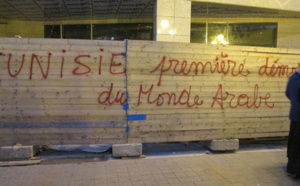 TUNISIE première dém
du Monde Arabe